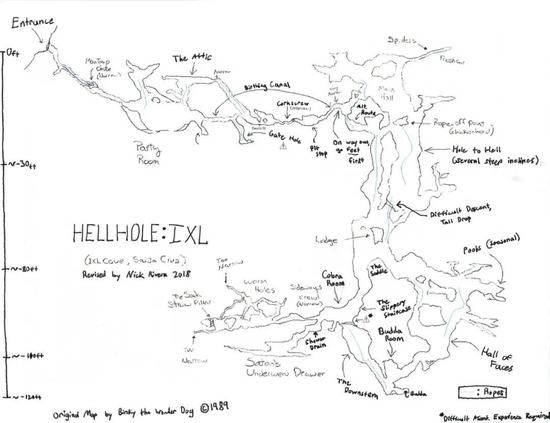 Entrance
0ft
Mantrap
Chute
(Narrow)
The Attic
Narrow
Birthing Canal
Corkscrew
Gate Hole
Pit
Stop
On way out,
go feet
first
Alt
Route
Main
Hall
Spiders
Party
Room
Rope off point
Hole to Hell
(several steep inclines)
~-30ft
Difficult Descent,
Tall Drop
HELLHOLE: IXL
(IXL Cave, Santa Cruz)
Revised by Nick Rivera 2018
Ledge
Pools (seasonal)
~-80ft
Too
Narrow
Worm
Holes
Sideways
Crawl
(Narrow)
Cobra
Room
The Saddle
The Soda
Straw Room
The
Slippery
Staircase
*
Budda
Room
Shower
Drain
Too
Narrow
Satan's
Underwear Drawer
Hall of
Faces
~-110ft
The
Downstem
Budda
~-120ft
: Ropes
Original Map by Binky the Wonder Dog ©1989
*Difficult Ascent. Experience Required